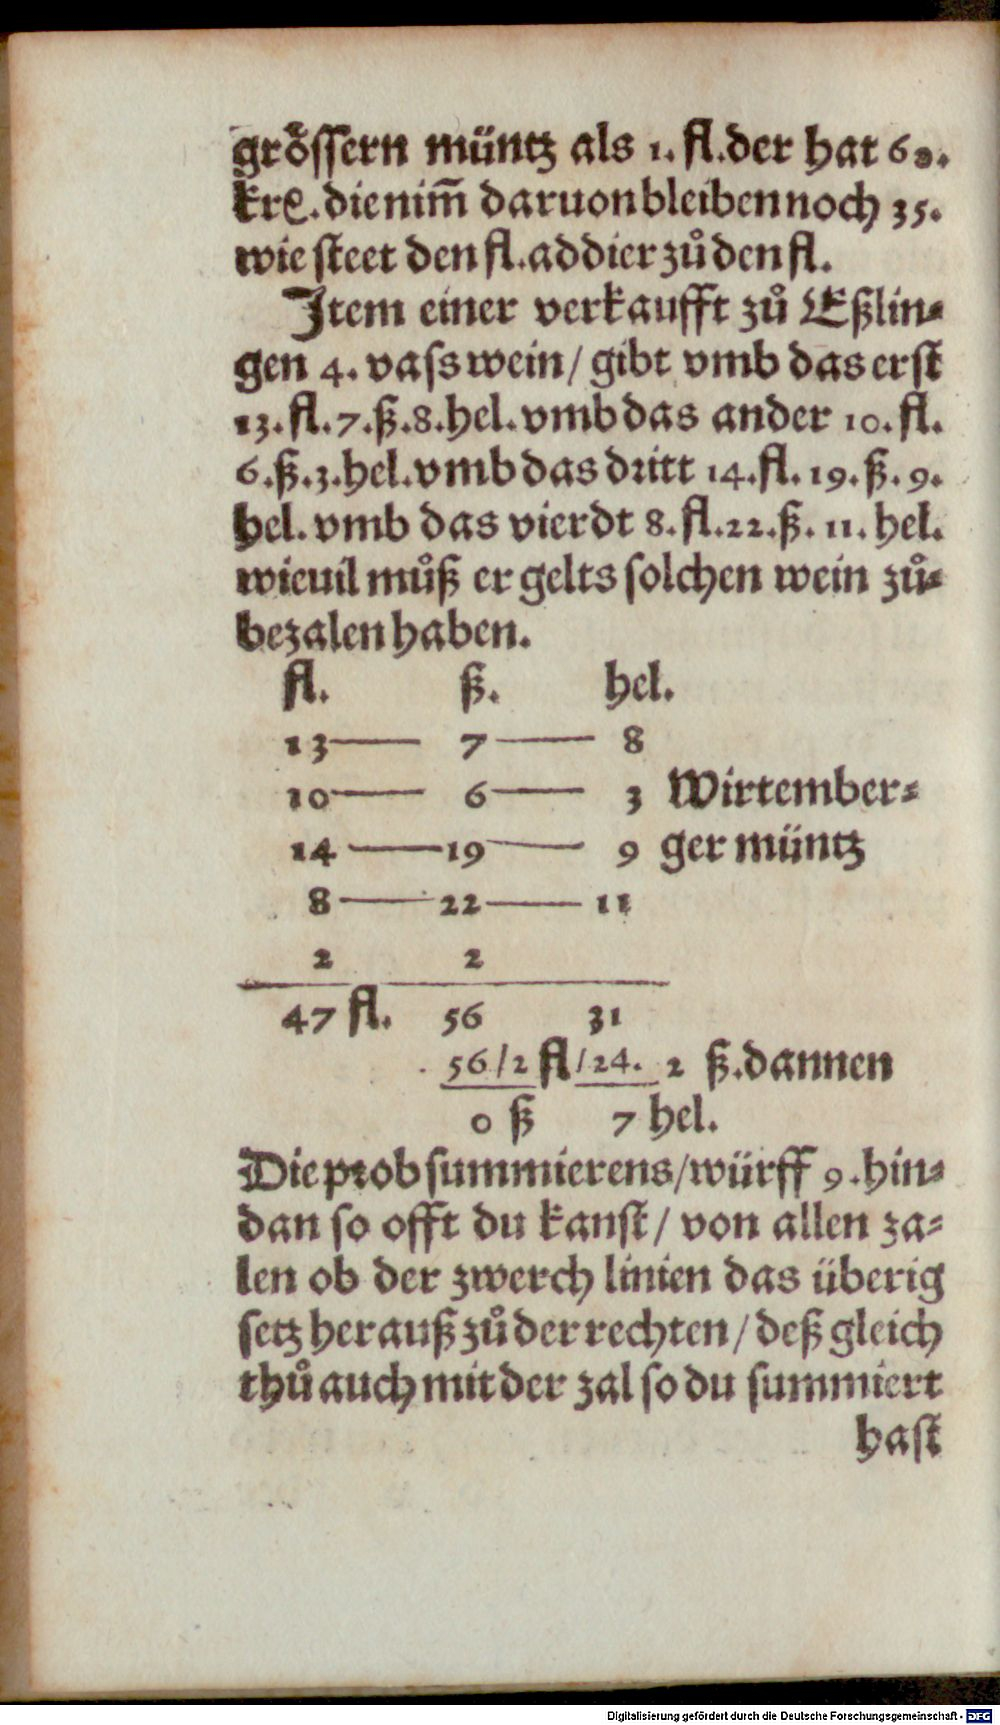 grössern müntz als 1. fl. der hat 60.
krꝫ. die nim̄ daruon bleiben noch 35.
wie steet den fl. addier zů den fl.
Item einer verkaufft zů Eßlin⸗
gen 4. vass wein/ gibt vmb das erst
13. fl. 7. ß. 8. hel. vmb das ander 10. fl.
6. ß. 3. hel. vmb das dritt 14. fl. 19. ß. 9.
hel. vmb das vierdt 8. fl. 22. ß. 11. hel.
wieuil můß er gelts solchen wein zů⸗
bezalen haben.
fl. ß. hel.
13 — 7 — 8
10 — 6 — 3 Wirtember⸗
14 — 19 — 9 ger müntz
8 — 22 — 11
2 2
47 fl. 56 31
56/2 fl /24. 2 ß. dannen
0 ß 7 hel.
Die prob summierens/ würff 9. hin⸗
dan so offt du kanst/ von allen za⸗
len ob der zwerch linien das überig
setz herauß zů der rechten/ deß gleich
thů auch mit der zal so du summiert
hast
Digitalisierung gefördert durch die Deutsche Forschungsgemeinschaft - DFG